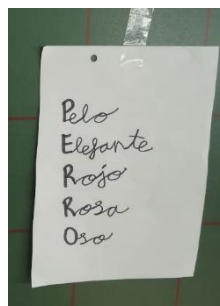 Pelo
Elefante
Rojo
Rosa
Oso